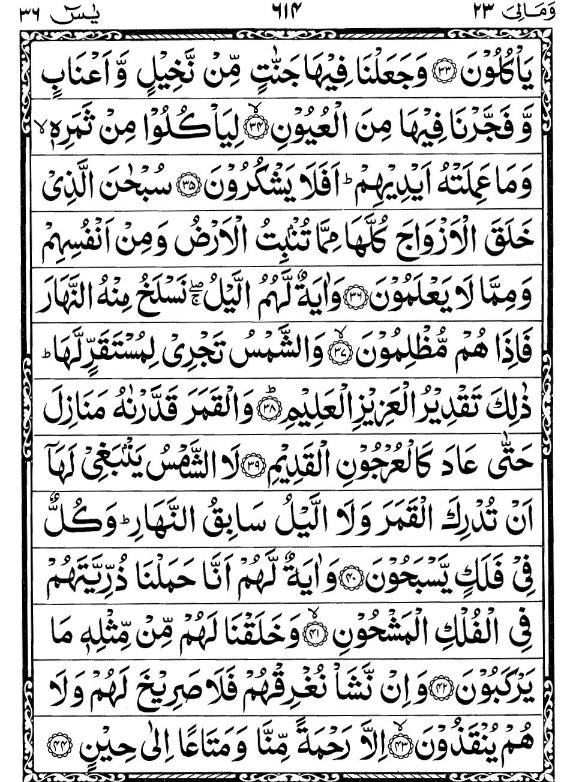 وَمَالِىَ ٢٣ ٦١٤ يٰسٓ ٣٦
يَاْكُلُوْنَ ﴿٣٣﴾ وَجَعَلْنَا فِيْهَا جَنّٰتٍ مِّنْ نَّخِيْلٍ وَّ اَعْنَابٍ
وَّ فَجَّرْنَا فِيْهَا مِنَ الْعُيُوْنِ ﴿٣٤﴾ۙ لِيَاْكُلُوْا مِنْ ثَمَرِهٖ ۙ
وَمَا عَمِلَتْهُ اَيْدِيْهِمْ ؕ اَفَلَا يَشْكُرُوْنَ ﴿٣٥﴾ سُبْحٰنَ الَّذِىْ
خَلَقَ الْاَزْوَاجَ كُلَّهَا مِمَّا تُنْۢبِتُ الْاَرْضُ وَمِنْ اَنْفُسِهِمْ
وَمِمَّا لَا يَعْلَمُوْنَ ﴿٣٦﴾ وَاٰيَةٌ لَّهُمُ الَّيْلُ ۖۚ نَسْلَخُ مِنْهُ النَّهَارَ
فَاِذَا هُمْ مُّظْلِمُوْنَ ﴿٣٧﴾ۙ وَالشَّمْسُ تَجْرِىْ لِمُسْتَقَرٍّ لَّهَا ؕ
ذٰلِكَ تَقْدِيْرُ الْعَزِيْزِ الْعَلِيْمِ ﴿٣٨﴾ؕ وَالْقَمَرَ قَدَّرْنٰهُ مَنَازِلَ
حَتّٰى عَادَ كَالْعُرْجُوْنِ الْقَدِيْمِ ﴿٣٩﴾ لَا الشَّمْسُ يَنْۢبَغِىْ لَهَاۤ
اَنْ تُدْرِكَ الْقَمَرَ وَلَا الَّيْلُ سَابِقُ النَّهَارِ ؕ وَكُلٌّ
فِىْ فَلَكٍ يَّسْبَحُوْنَ ﴿٤٠﴾ وَاٰيَةٌ لَّهُمْ اَنَّا حَمَلْنَا ذُرِّيَّتَهُمْ
فِى الْفُلْكِ الْمَشْحُوْنِ ﴿٤١﴾ۙ وَخَلَقْنَا لَهُمْ مِّنْ مِّثْلِهٖ مَا
يَرْكَبُوْنَ ﴿٤٢﴾ وَاِنْ نَّشَاْ نُغْرِقْهُمْ فَلَا صَرِيْخَ لَهُمْ وَلَا
هُمْ يُنْقَذُوْنَ ﴿٤٣﴾ۙ اِلَّا رَحْمَةً مِّنَّا وَمَتَاعًا اِلٰى حِيْنٍ ﴿٤٤﴾